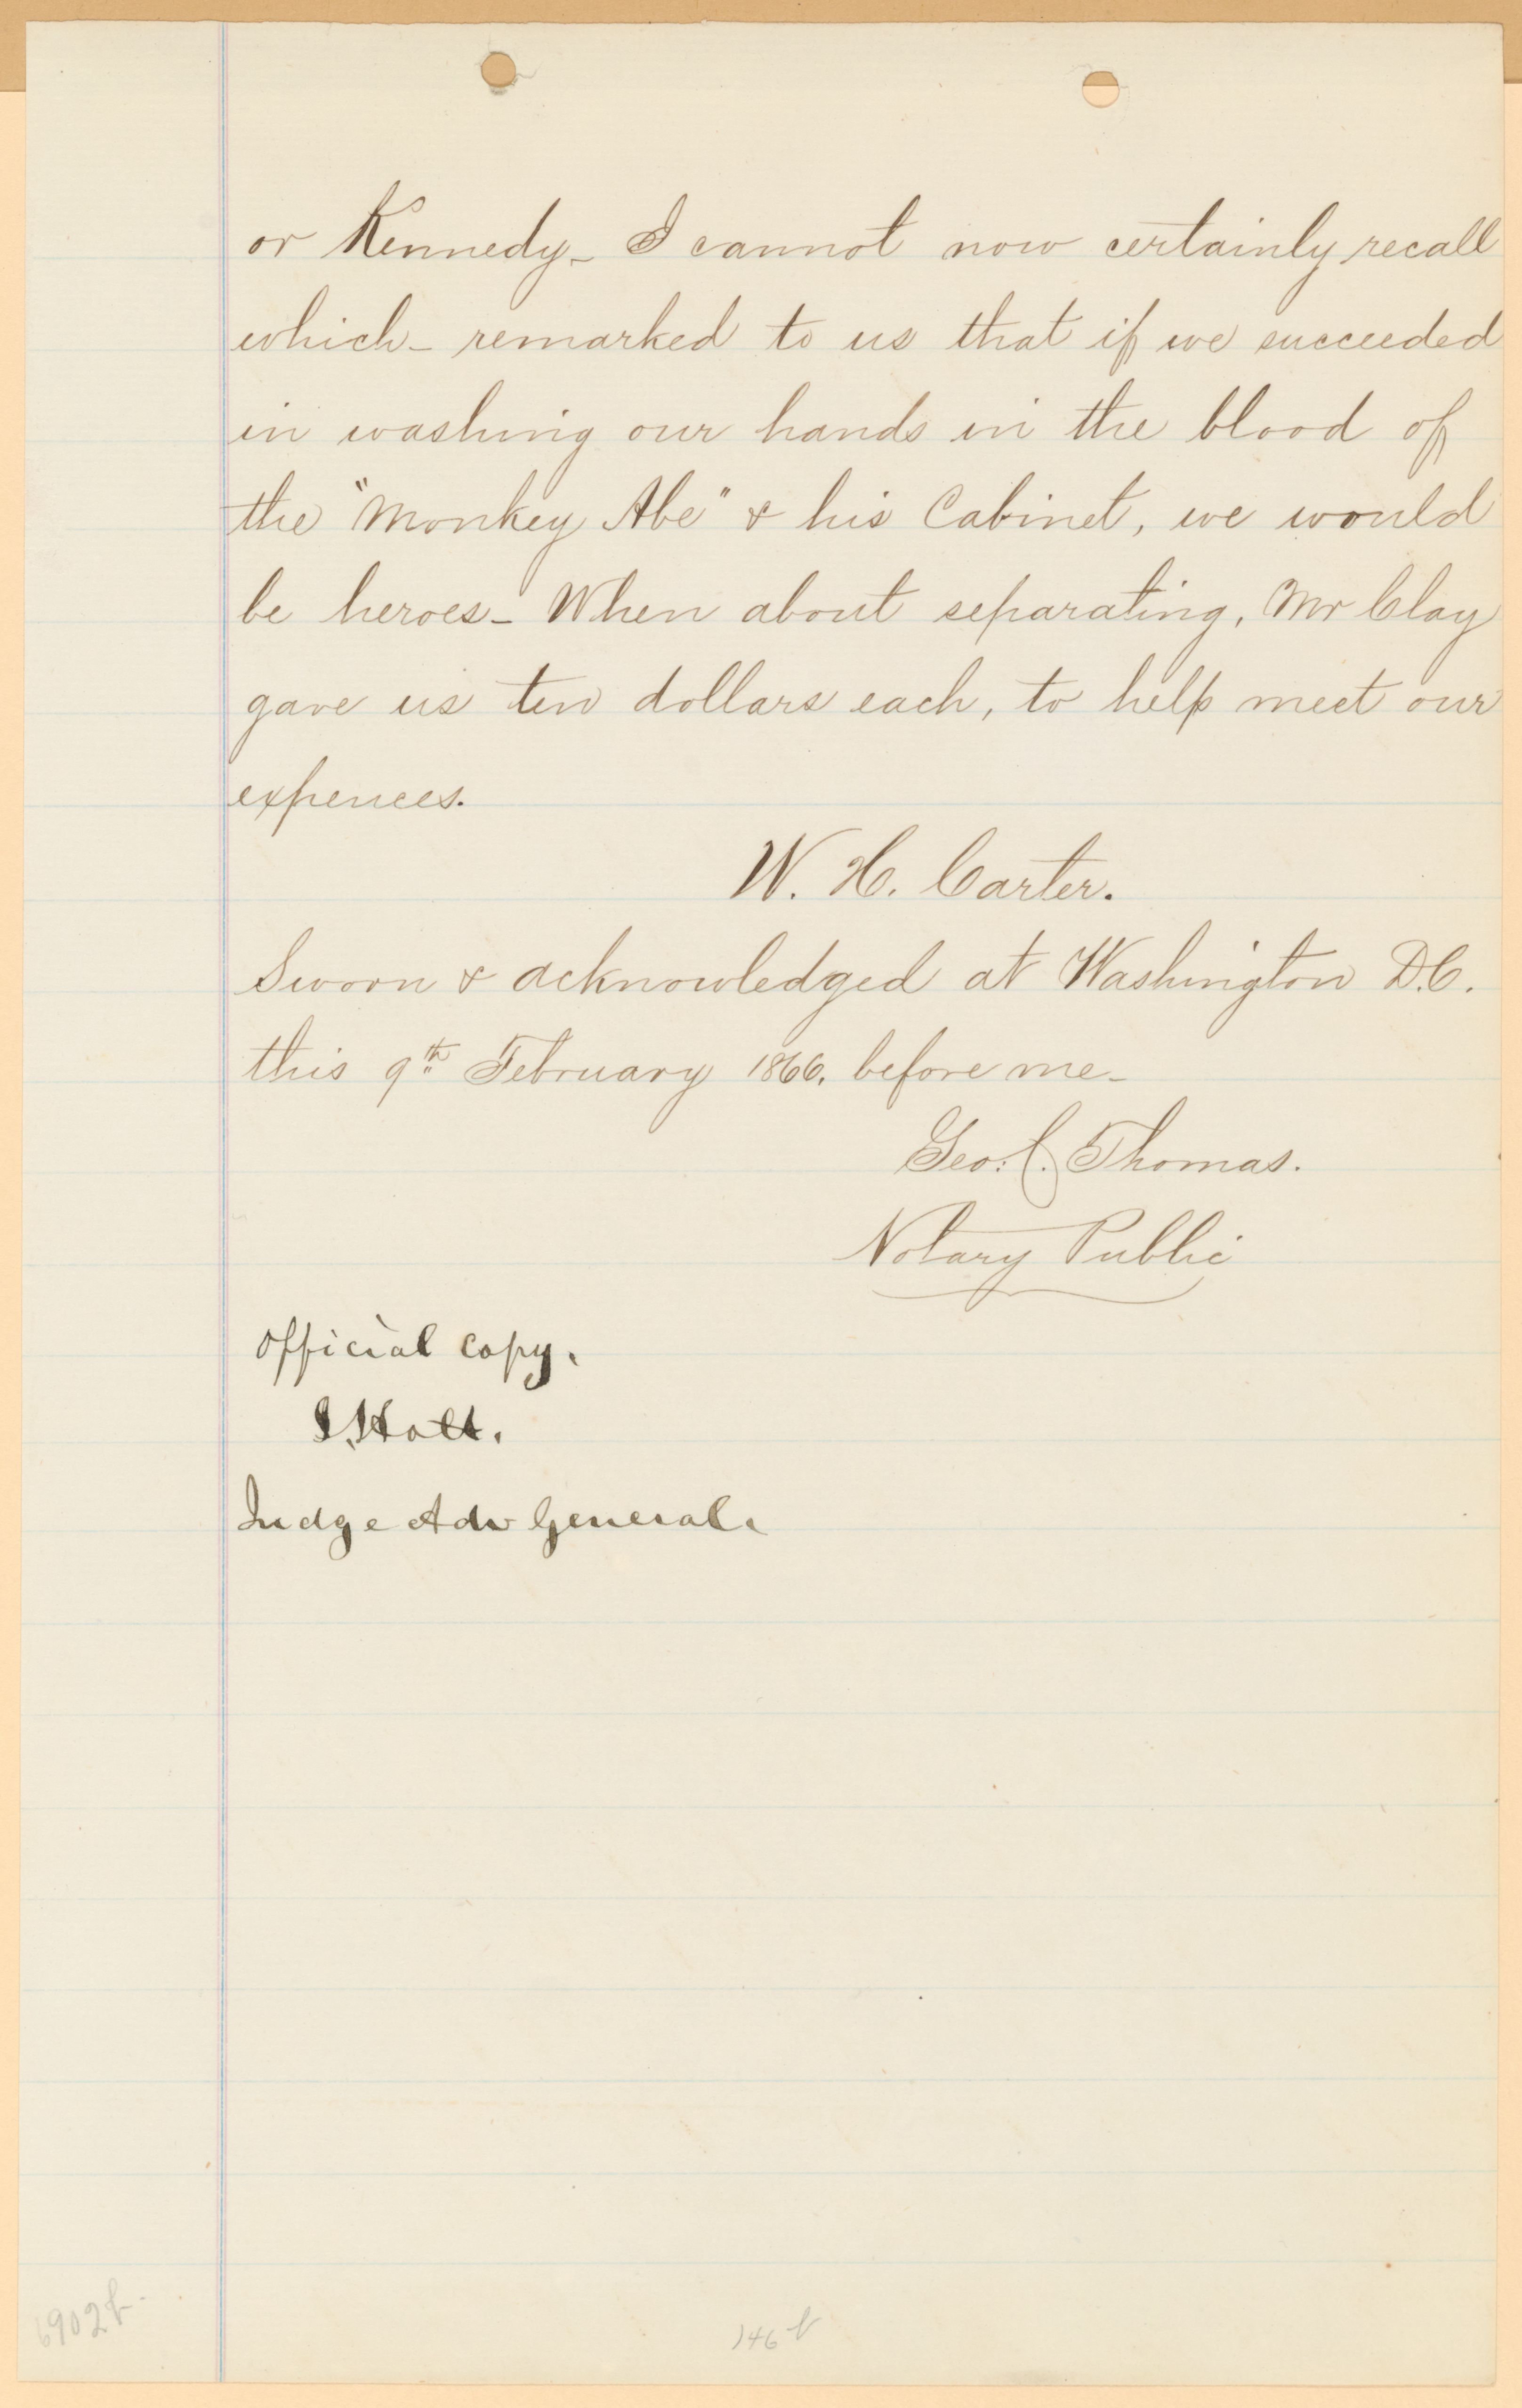 or Kennedy_ I cannot now certainly recall
which_ remarked to us that if we succeeded
in washing our hands in the blood of
the "Monkey Abe" & his Cabinet, we would
be heroes_ When about separating, Mr Clay
gave us ten dollars each, to help meet our
expences.
W. H. Carter.
Sworn & acknowledged at Washington D.C.
this 9th February 1866. before me_
Geo: C. Thomas.
Notary Public
Official copy.
J. Holt.
Judge Adv General.
146